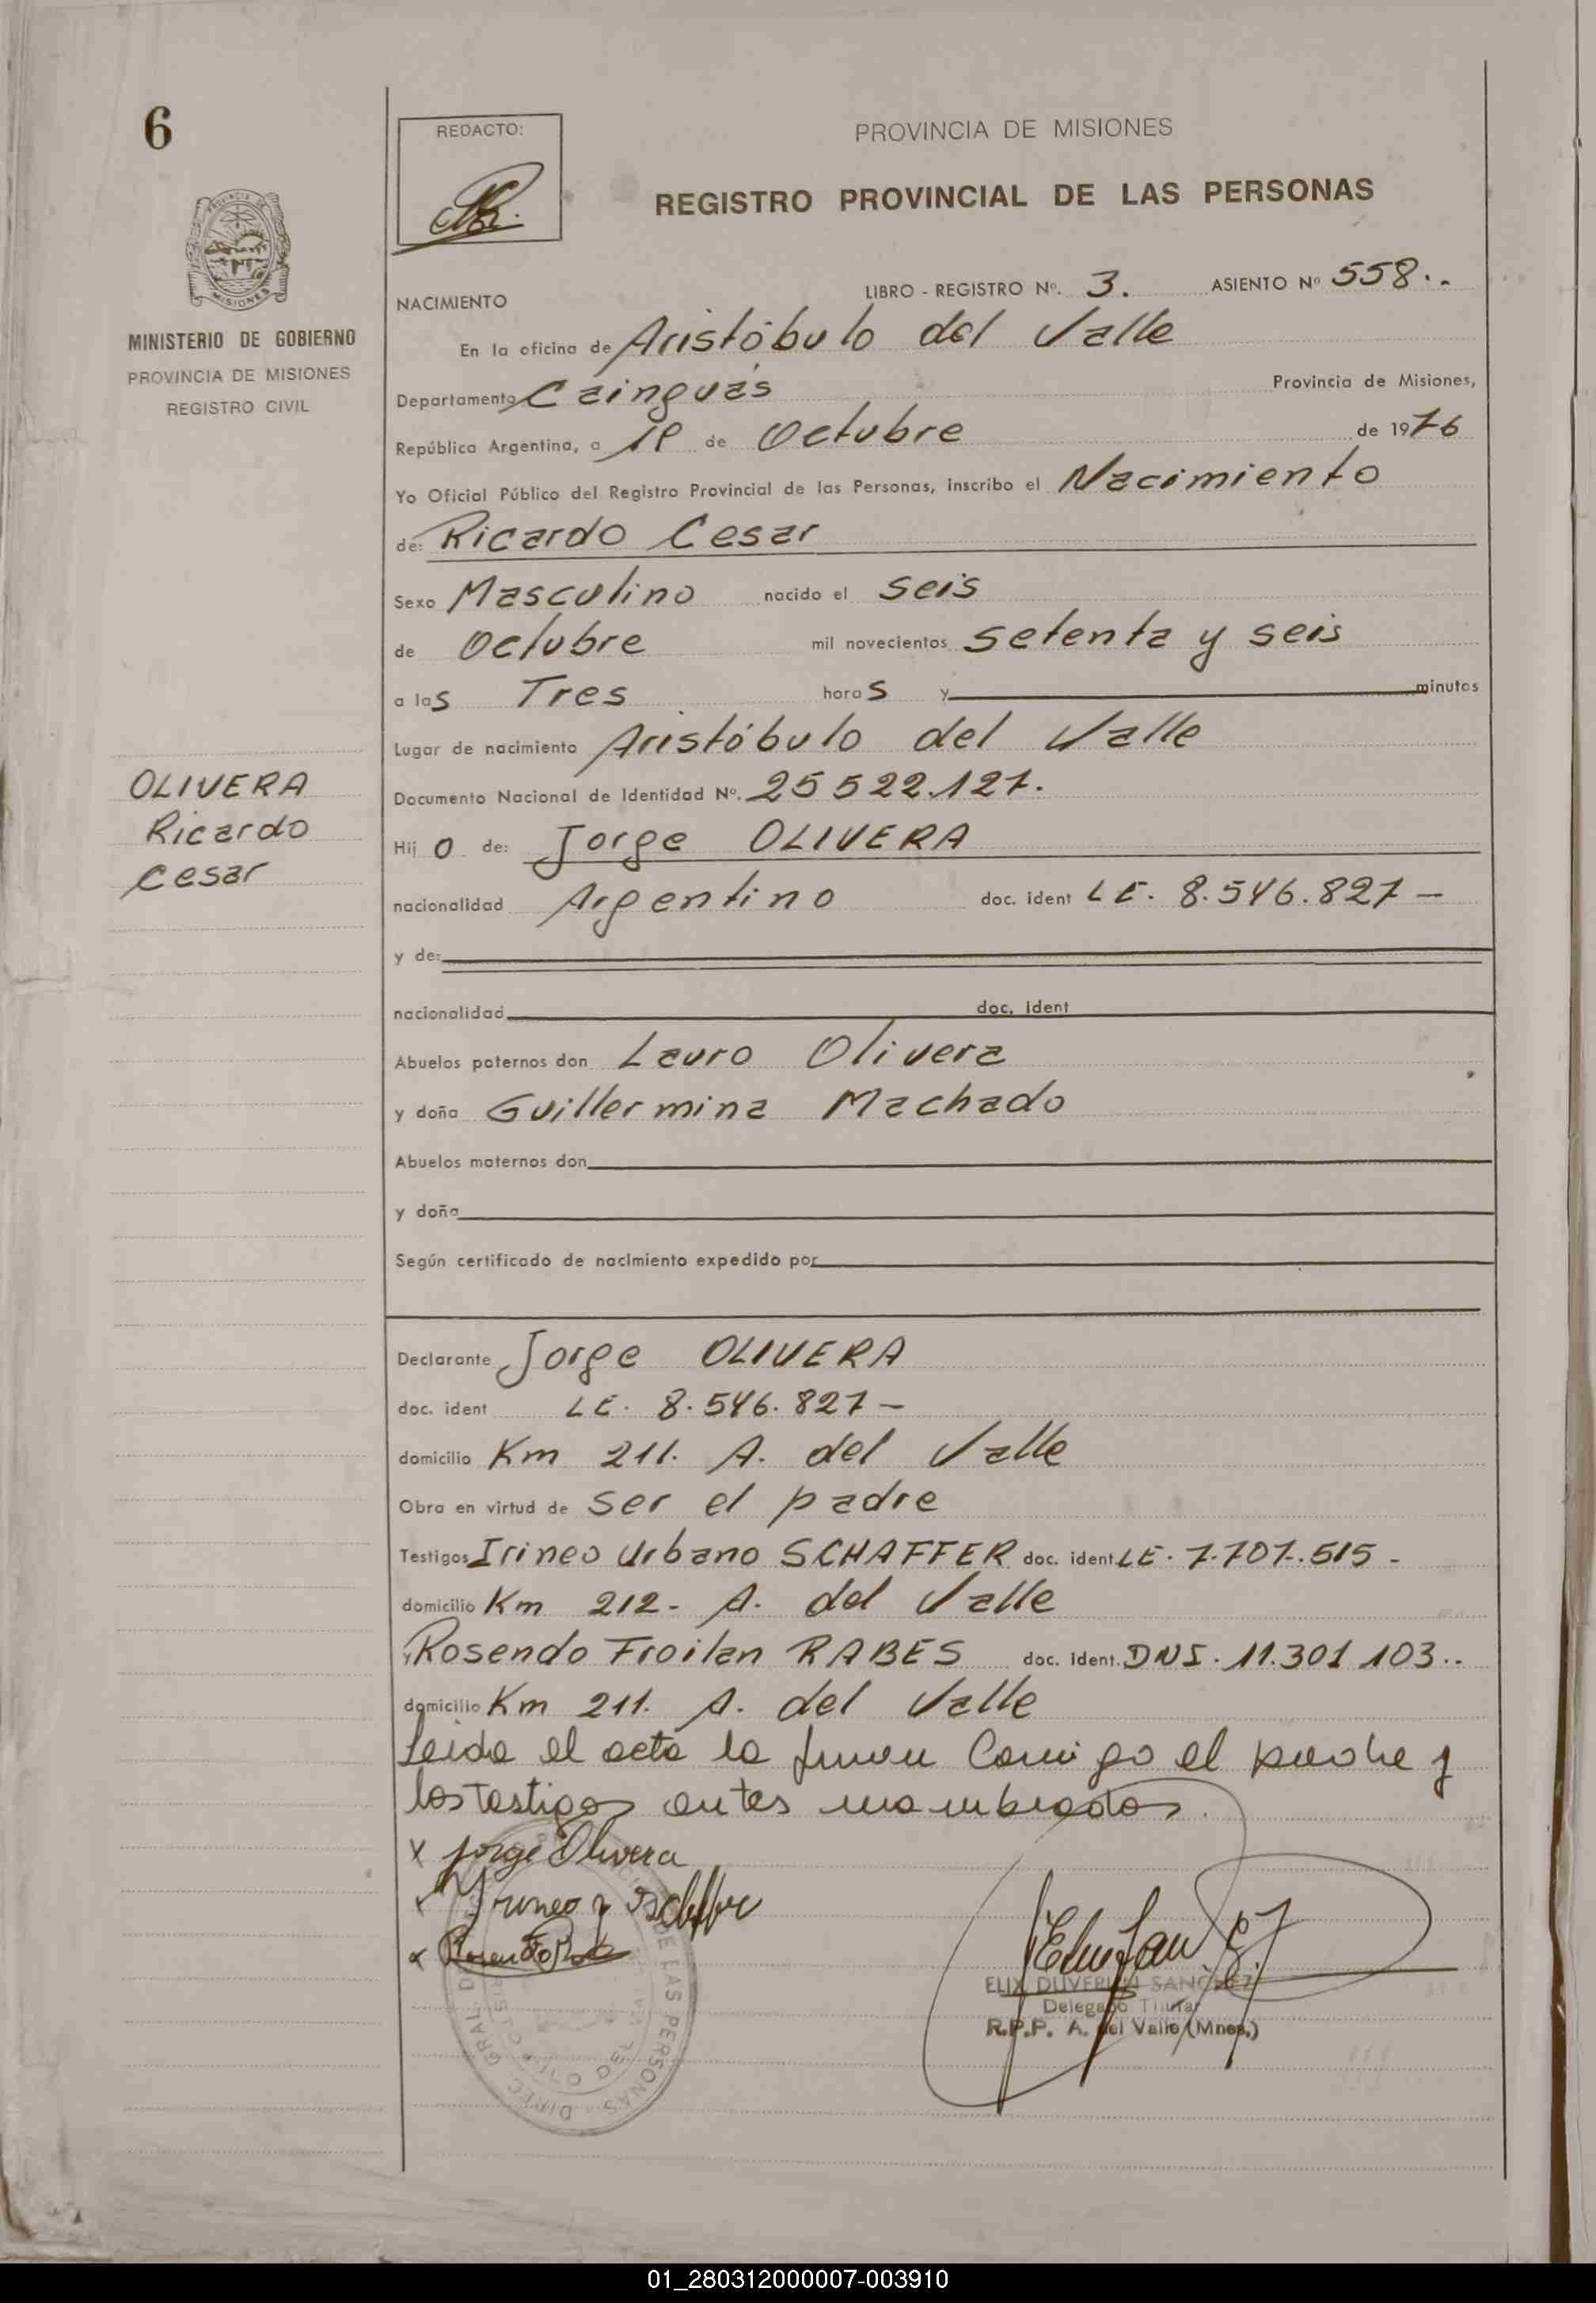 6
REDACTO:
PROVINCIA DE MISIONES
REGISTRO PROVINCIAL DE LAS PERSONAS
MISIONES
MINISTERIO DE GOBIERNO
PROVINCIA DE MISIONES
REGISTRO CIVIL
NACIMIENTO
LIBRO - REGISTRO Nº. 3. ASIENTO Nº 558..
En la oficina de Aristóbulo del Valle
Departamento Cainguás Provincia de Misiones,
República Argentina, a de Octubre de 1976
Yo Oficial Público del Registro Provincial de las Personas, inscribo el Nacimiento
de: Ricardo Cesar
Sexo Masculino nacido el seis
de Octubre mil novecientos setenta y seis
a las Tres horas y minutos
Lugar de nacimiento Aristóbulo del Valle
OLIVERA
Ricardo
Cesar
Documento Nacional de Identidad Nº. 25522.127.
Hijo de: Jorge OLIVERA
nacionalidad Argentino doc. ident LE. 8.546.827 -
y de:
nacionalidad doc. ident
Abuelos paternos don Lauro Olivera
y doña Guillermina Machado
Abuelos maternos don
y doña
Según certificado de nacimiento expedido por
Declarante Jorge OLIVERA
doc. ident LE. 8.546.827 -
domicilio Km 211. A. del Valle
Obra en virtud de ser el padre
Testigos Irineo Urbano SCHAFFER doc. ident LE. 7.707.515 -
domicilio Km 212 - A. del Valle
y Rosendo Froilan RABES doc. ident. DNI. 11.301 103..
domicilio Km 211. A. del Valle
Leida el acta la firman Comigo el padre y
los testigos antes mombrados.
x Jorge Olivera
ELIX DUVERLY SANCHEZ
Delegado Titular
R.P.P. A. del Valle (Mnes.)
DE LAS PERSONAS - DIREC. GRAL. D
01_280312000007-003910